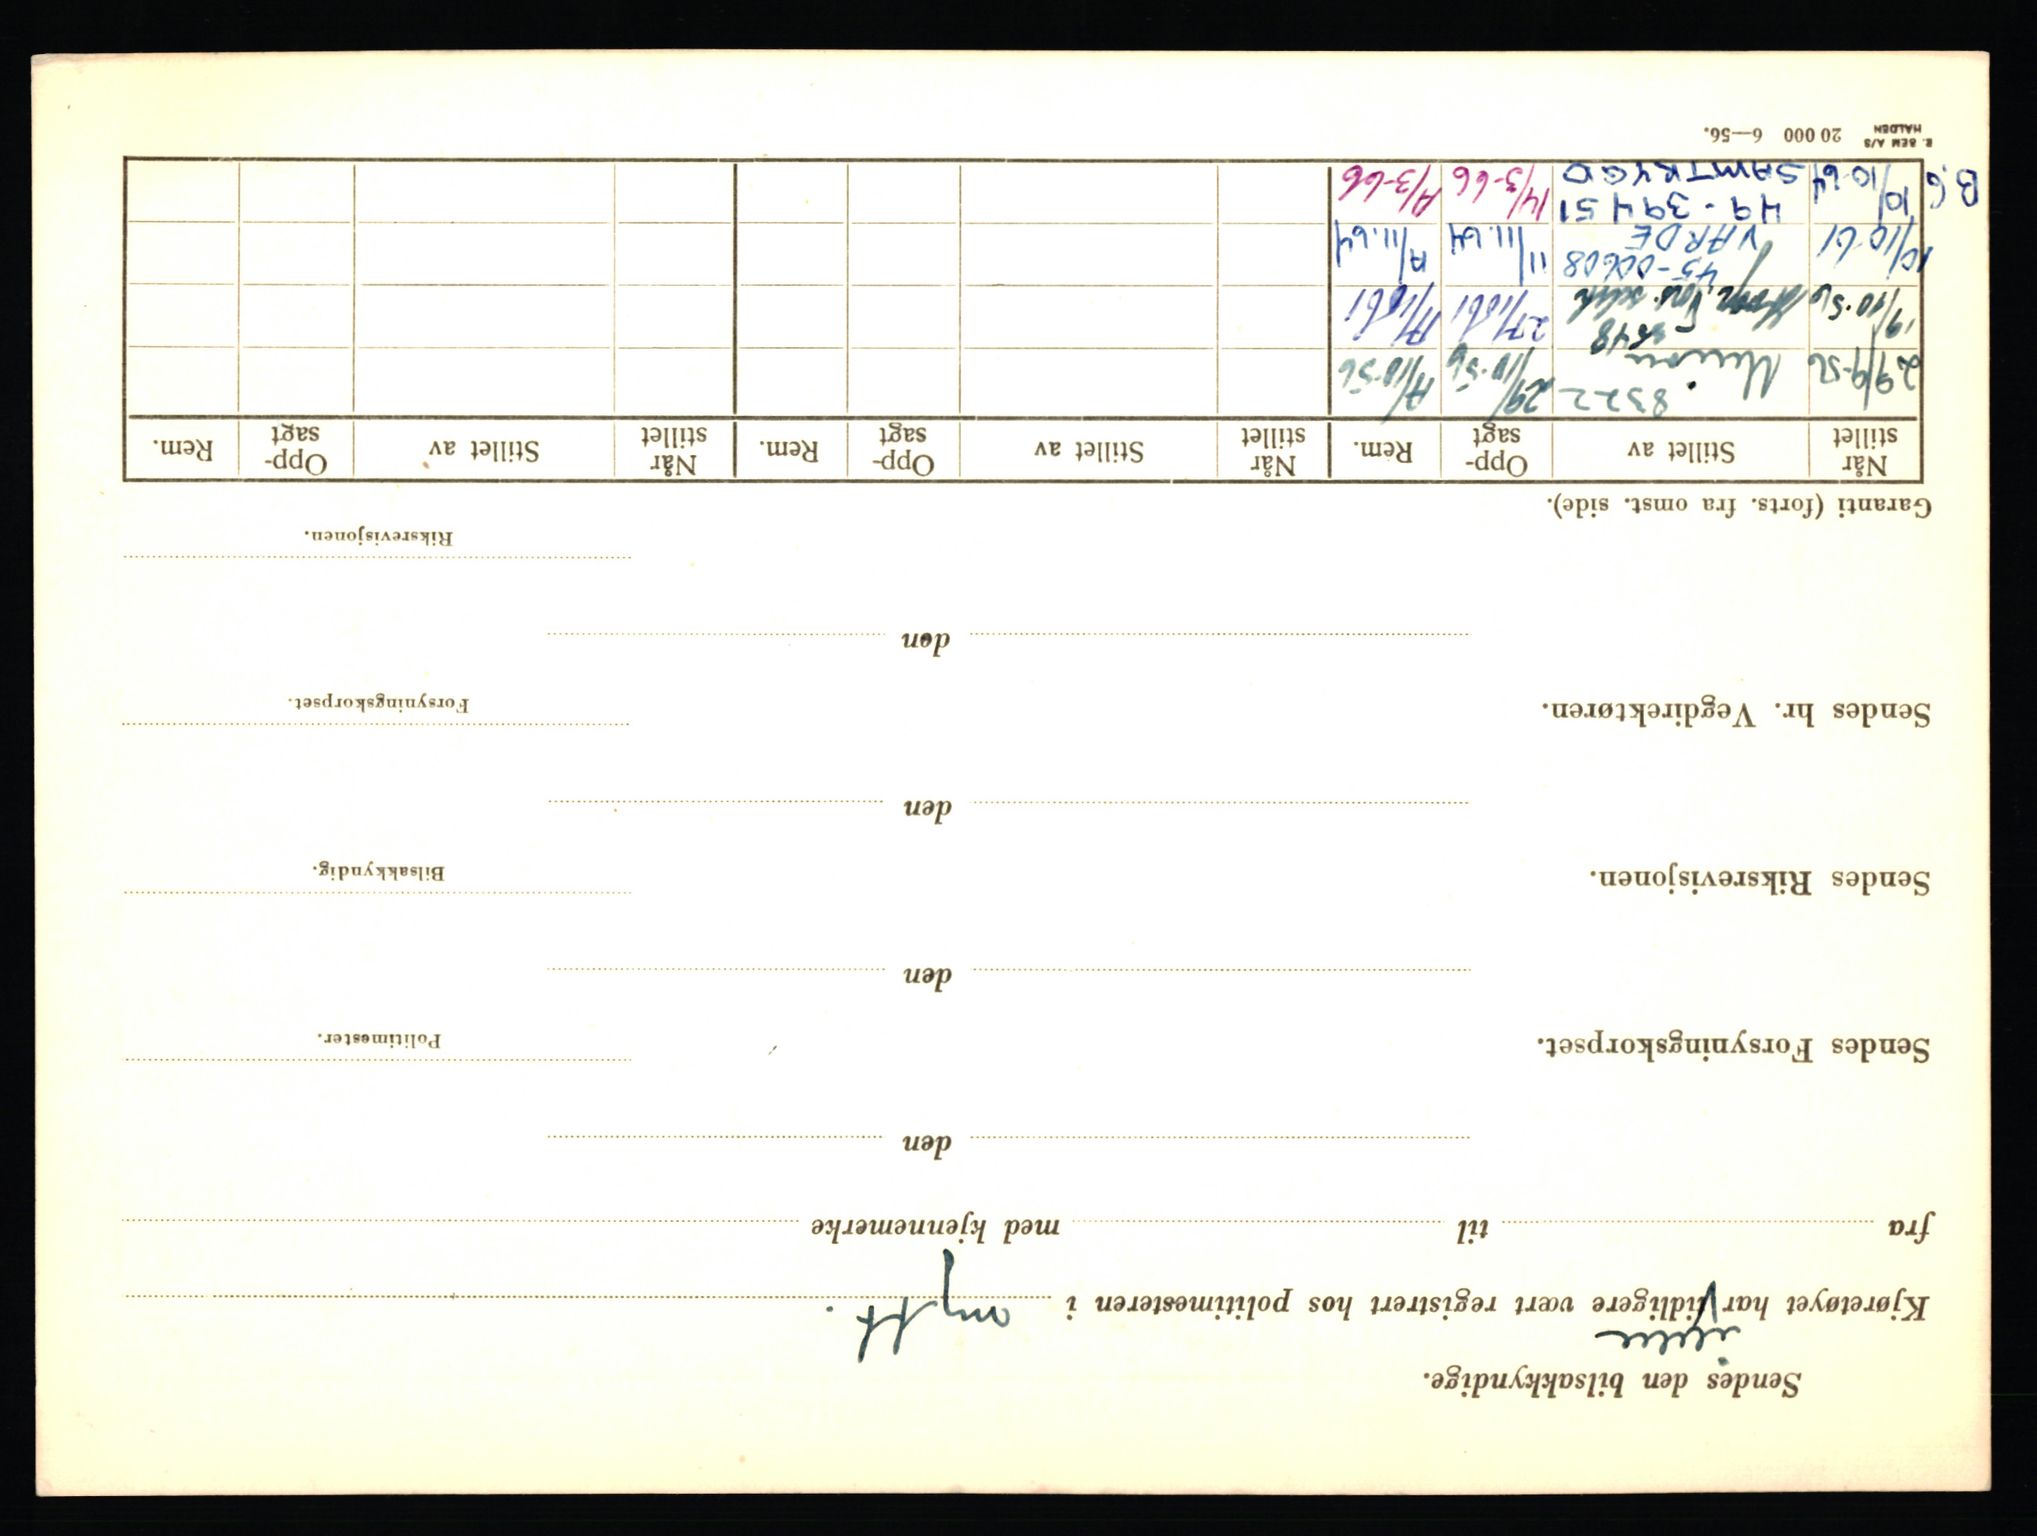 Sendes den bilsakkyndige.
ikke
Kjøretøyet har tidligere vært registrert hos politimesteren i
nytt.
fra til med kjennemerke
den
Politimester.
Sendes Forsyningskorpset.
den
Bilsakkyndig.
Sendes Riksrevisjonen.
den
Forsyningskorpset.
Sendes hr. Vegdirektøren.
den
Riksrevisjonen.
Garanti (forts. fra omst. side).
Når stillet Stillet av Opp-sagt Rem. Når stillet Stillet av Opp-sagt Rem. Når stillet Stillet av Opp-sagt Rem.
29/9-56 8322 29/10.56 A/10-56
5548
19/10.56 27/10 61 A/10 61
45-00608
10/10-61 VARDE 11/11.64 A/11.64
49-39451
B.G 10/10-64 SAMTRYGD 14/3-66 A/3-66
E. SEM A/S HALDEN 20 000 6—56.